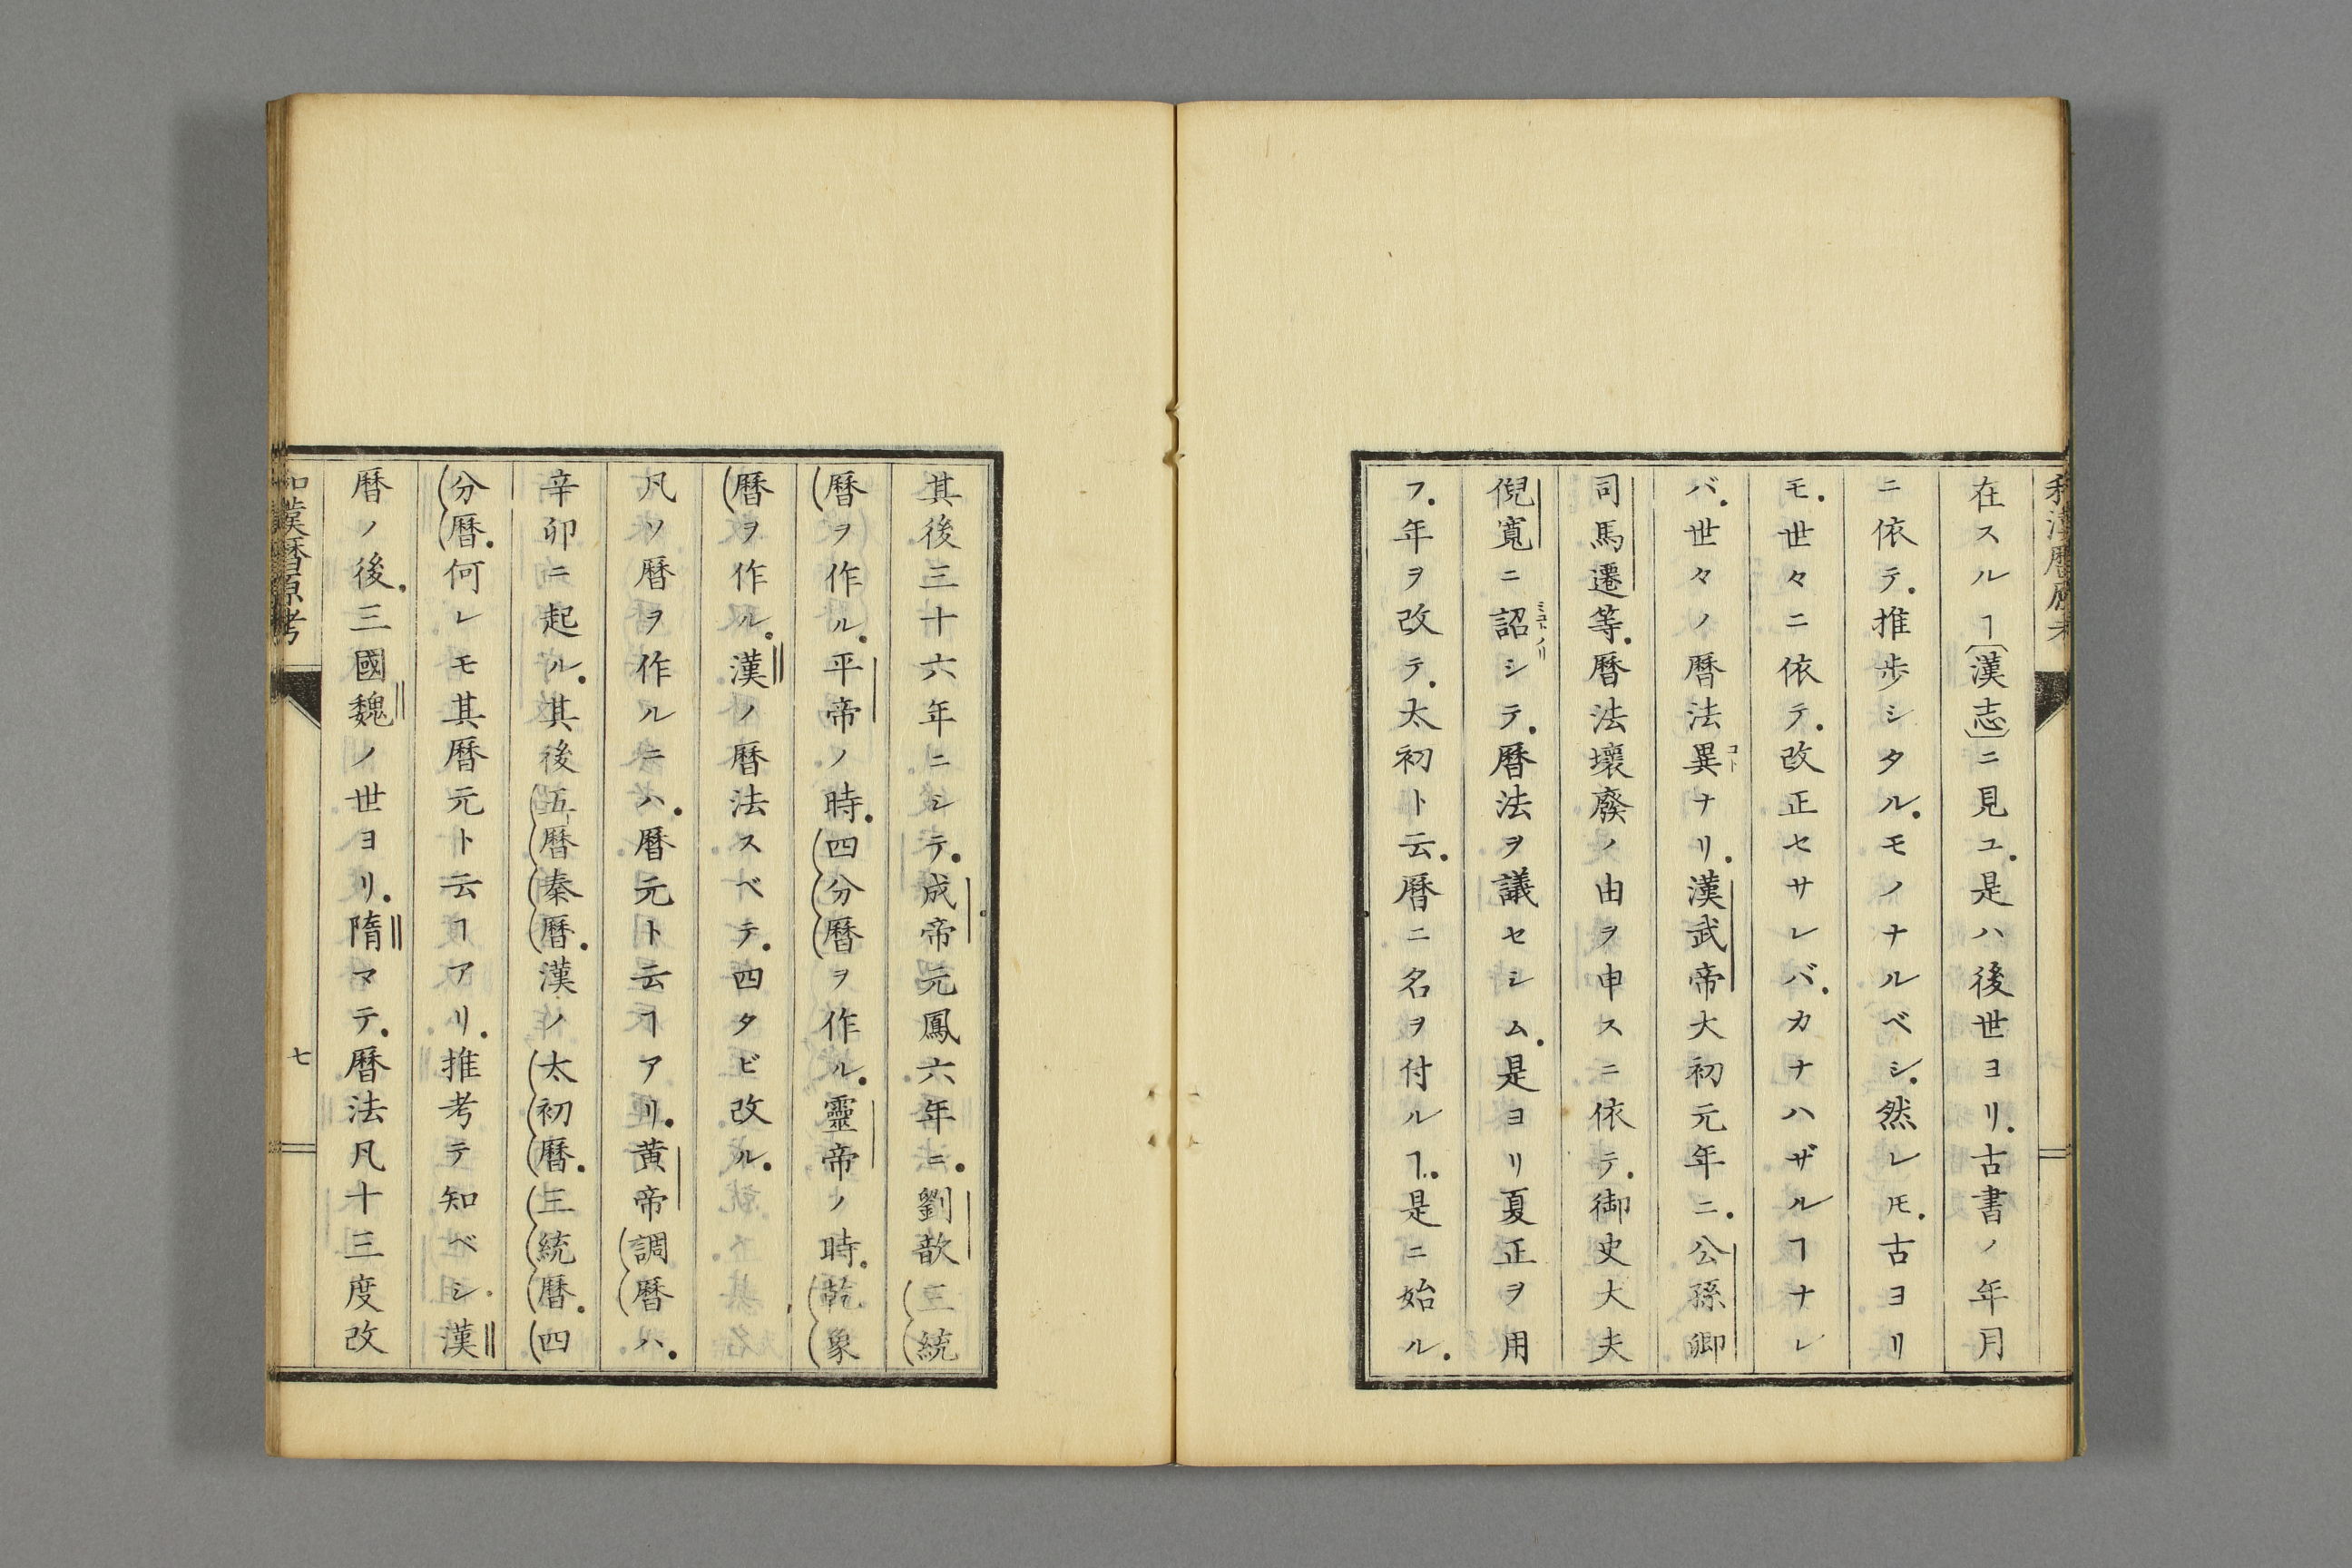 和漢暦原考
在スルヿ〔漢志〕ニ見ユ．是ハ後世ヨリ．古書ノ年月
ニ依テ．推歩シタル．モノナルベシ．然レ𪜈．古ヨリ
モ．世々ニ依テ．改正セサレバ．カナハザルヿナレ
バ．世々ノ暦法異ナリ．漢武帝大初元年ニ．公孫卿
コト
司馬遷等．暦法壞廢ノ由ヲ申スニ依テ．御史大夫
倪寬ニ詔シテ．暦法ヲ議セシム．是ヨリ夏正ヲ用
ミコトノリ
フ．年ヲ改テ．太初ト云．暦ニ名ヲ付ルヿ．是ニ始ル．
其後三十六年ニシテ．成帝元鳳六年ニ．劉歆三統
暦ヲ作ル．平帝ノ時．四分暦ヲ作ル．靈帝ノ時．乾象
暦ヲ作ル．漢ノ暦法スベテ．四タビ改ル．
凡ソ暦ヲ作ルニハ．暦元ト云ヿアリ．黄帝調暦ハ．
辛卯ニ起ル．其後五暦秦暦．漢ノ太初暦．三統暦．四
分暦．何レモ其暦元ト云ヿアリ．推考テ知ベシ．漢
暦ノ後．三國魏ノ世ヨリ．隋マテ．暦法凡十三度改
和漢暦原考
七